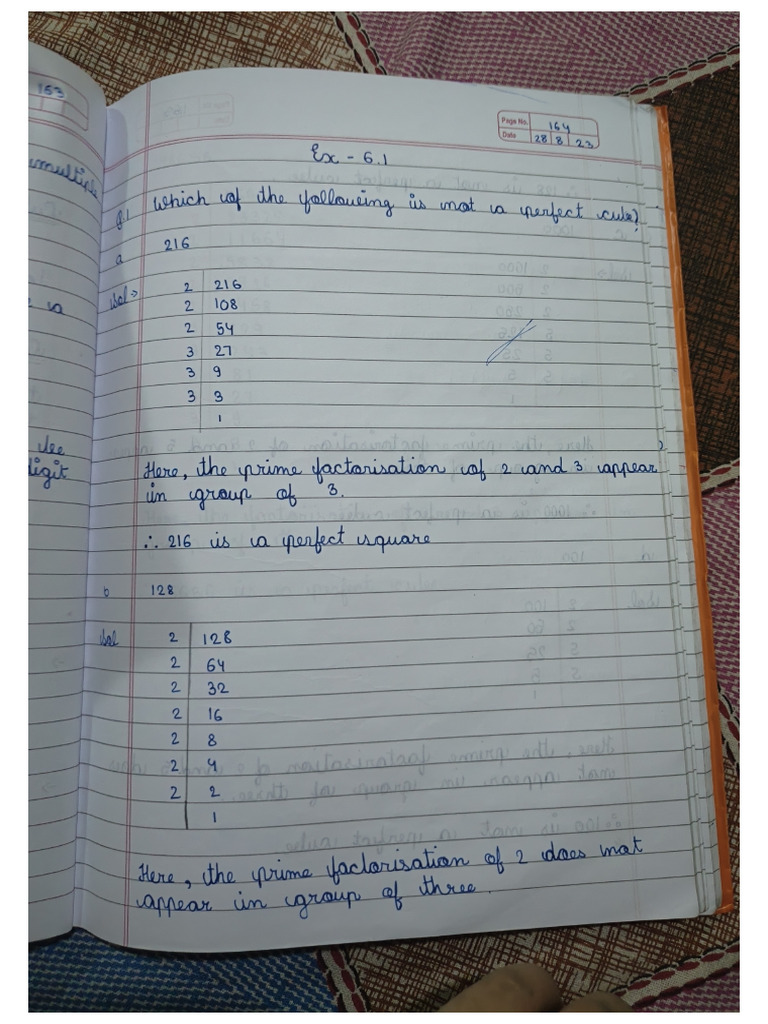 163
multiple
see
digit
Page No. 164
Date 28 8 23
Ex - 6.1
Q.1 Which of the following is not a perfect cube?
a 216
Sol→ 2 216
2 108
2 54
3 27
3 9
3 3
1
Here, the prime factorisation of 2 and 3 appear
in group of 3.
∴ 216 is a perfect square
b 128
Sol 2 128
2 64
2 32
2 16
2 8
2 4
2 2
1
Here, the prime factorisation of 2 does not
appear in group of three.